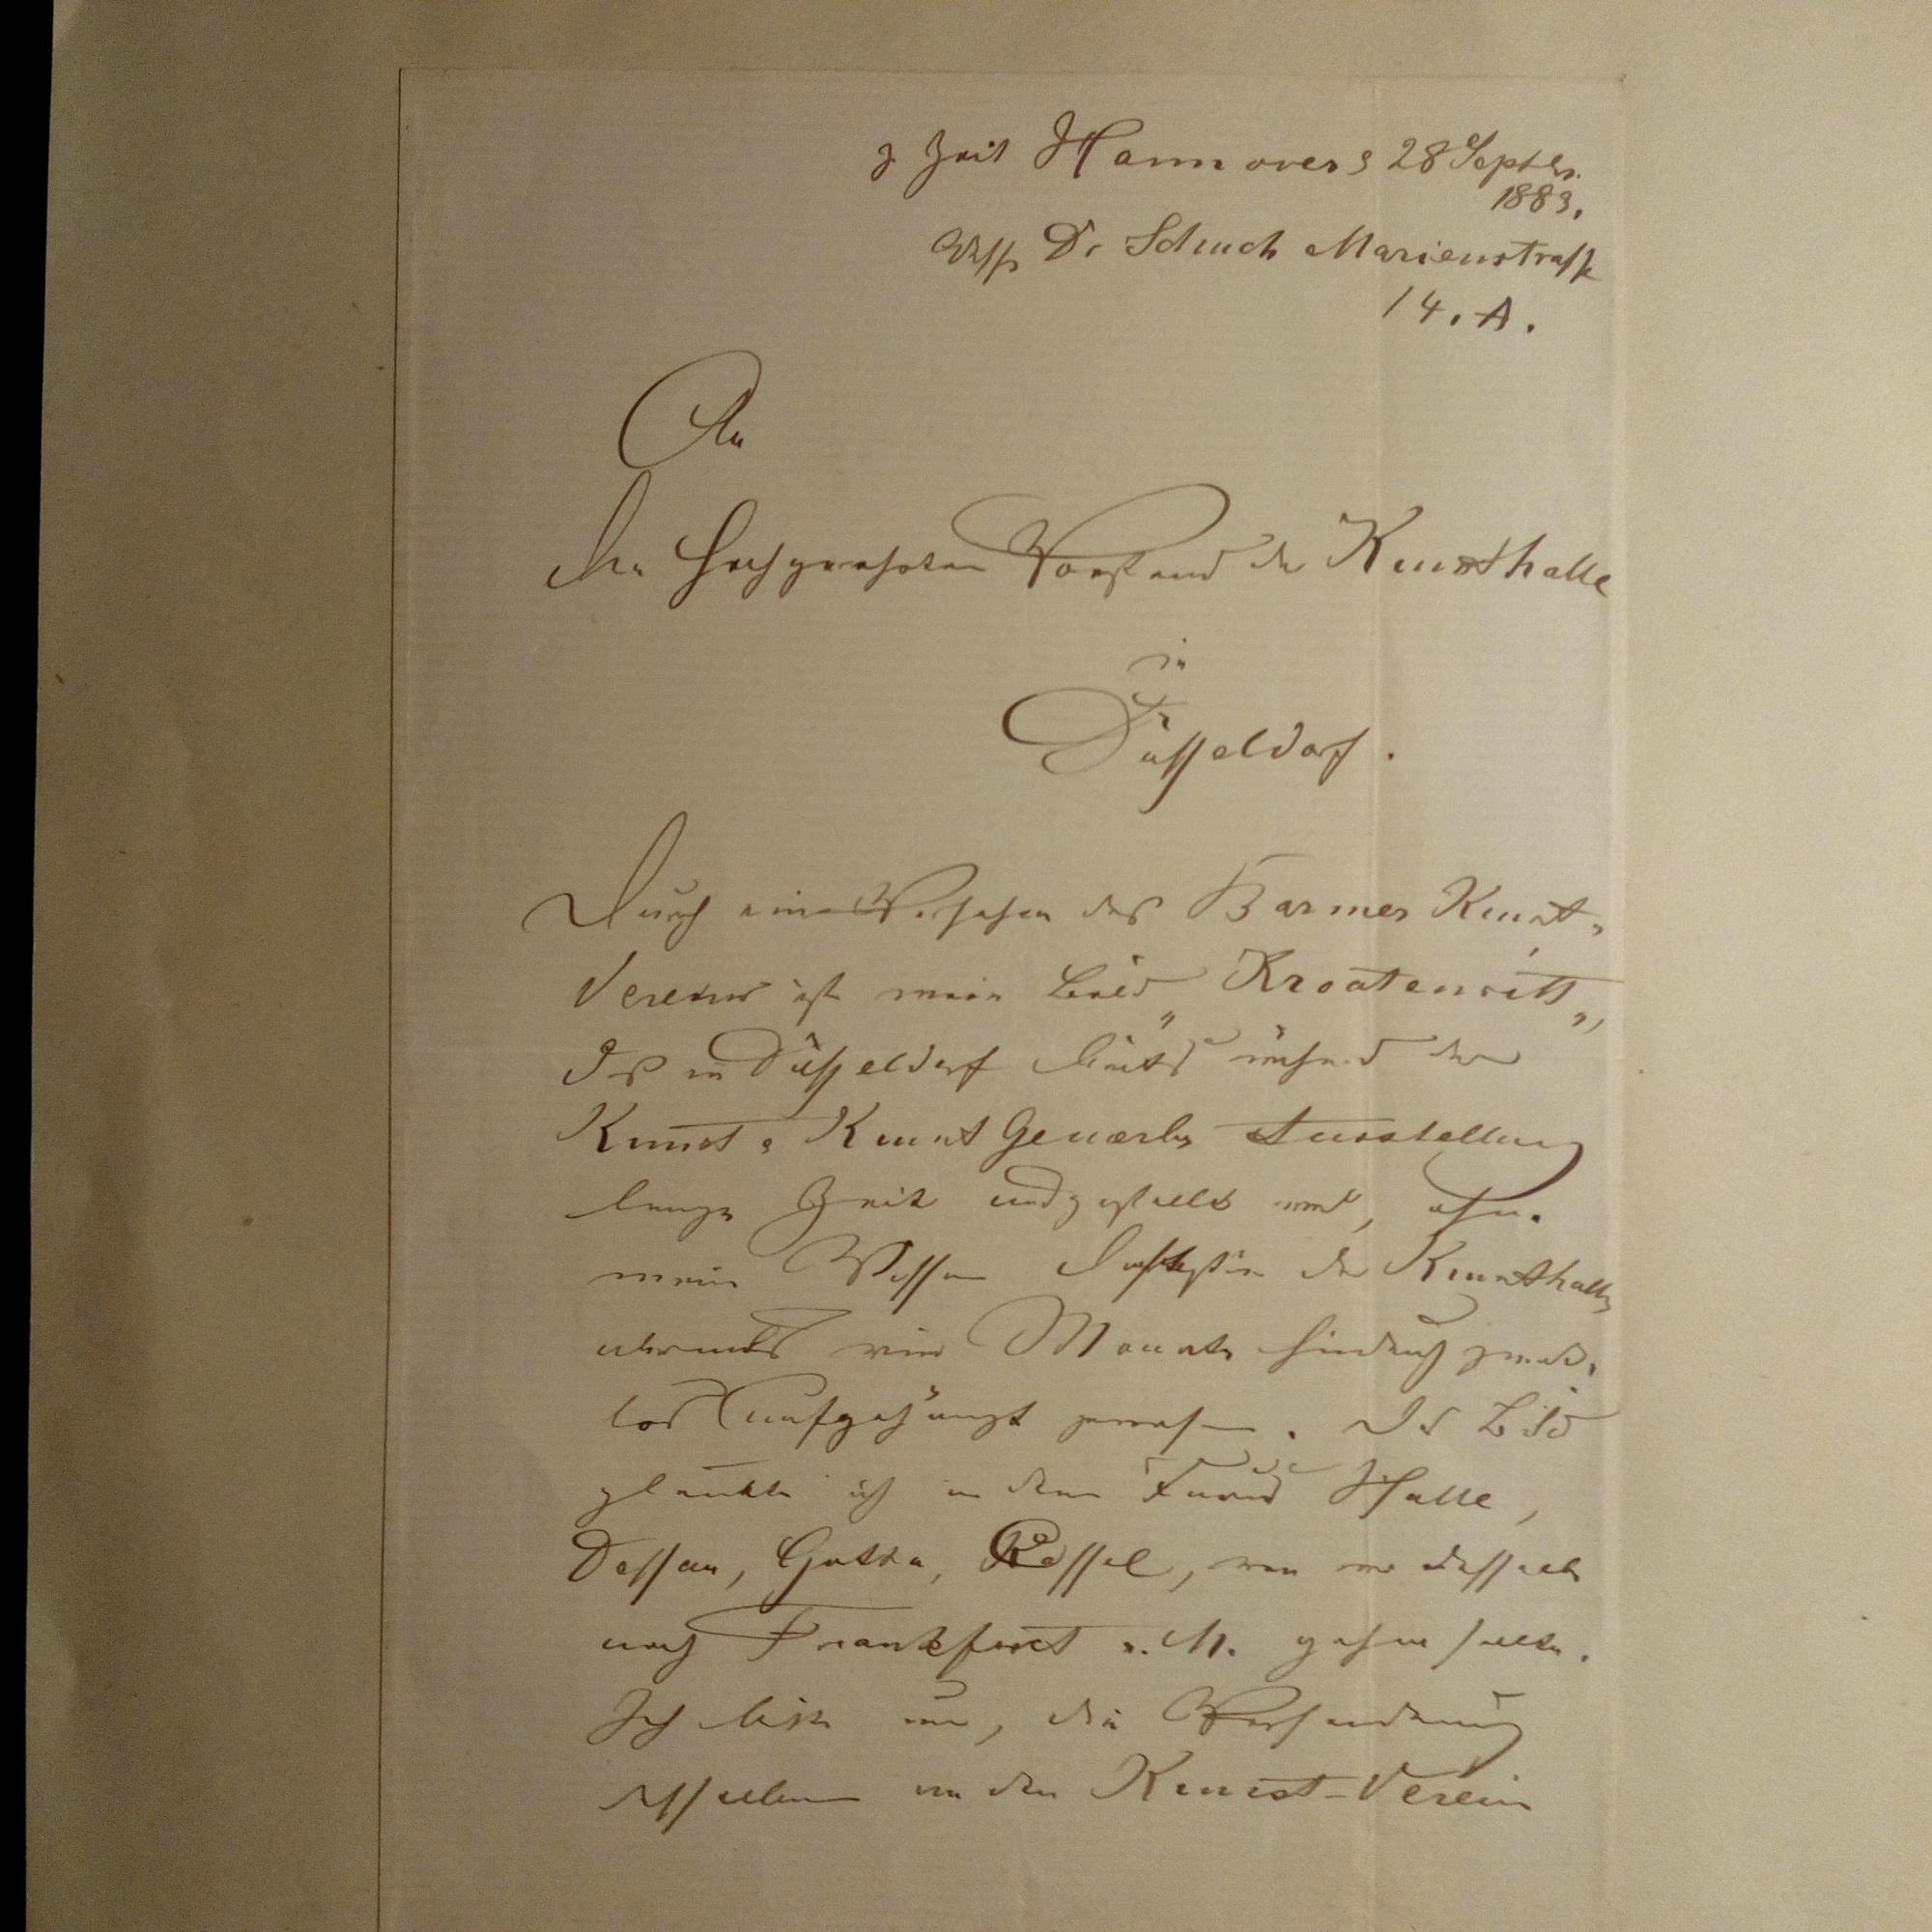 z Zeit Hannover d 28 Septbr.
1883.
Adr. Dr Schuch Marienstraße
14. A.
An
den Hochgeehrten Vorstand der Kunsthalle
in
Düsseldorf.
Durch ein Versehen des Barmer Kunst-
Vereins ist mein Bild „Kroatenritt“,
das in Düsseldorf bereits während der
Kunst & Kunst Gewerbe Ausstellung
lange Zeit ausgestellt war, ohne
mein Wissen in der Kunsthalle
abermals vier Monate hindurch zweck-
los aufgehängt gewesen. Das Bild
glaubte ich in dem Turnus Halle,
Dessau, Gotha, Kassel, von wo dasselbe
nach Frankfurt a. M. gehen sollte.
Ich bitte nun, die Versendung
desselben an den Kunst-Verein